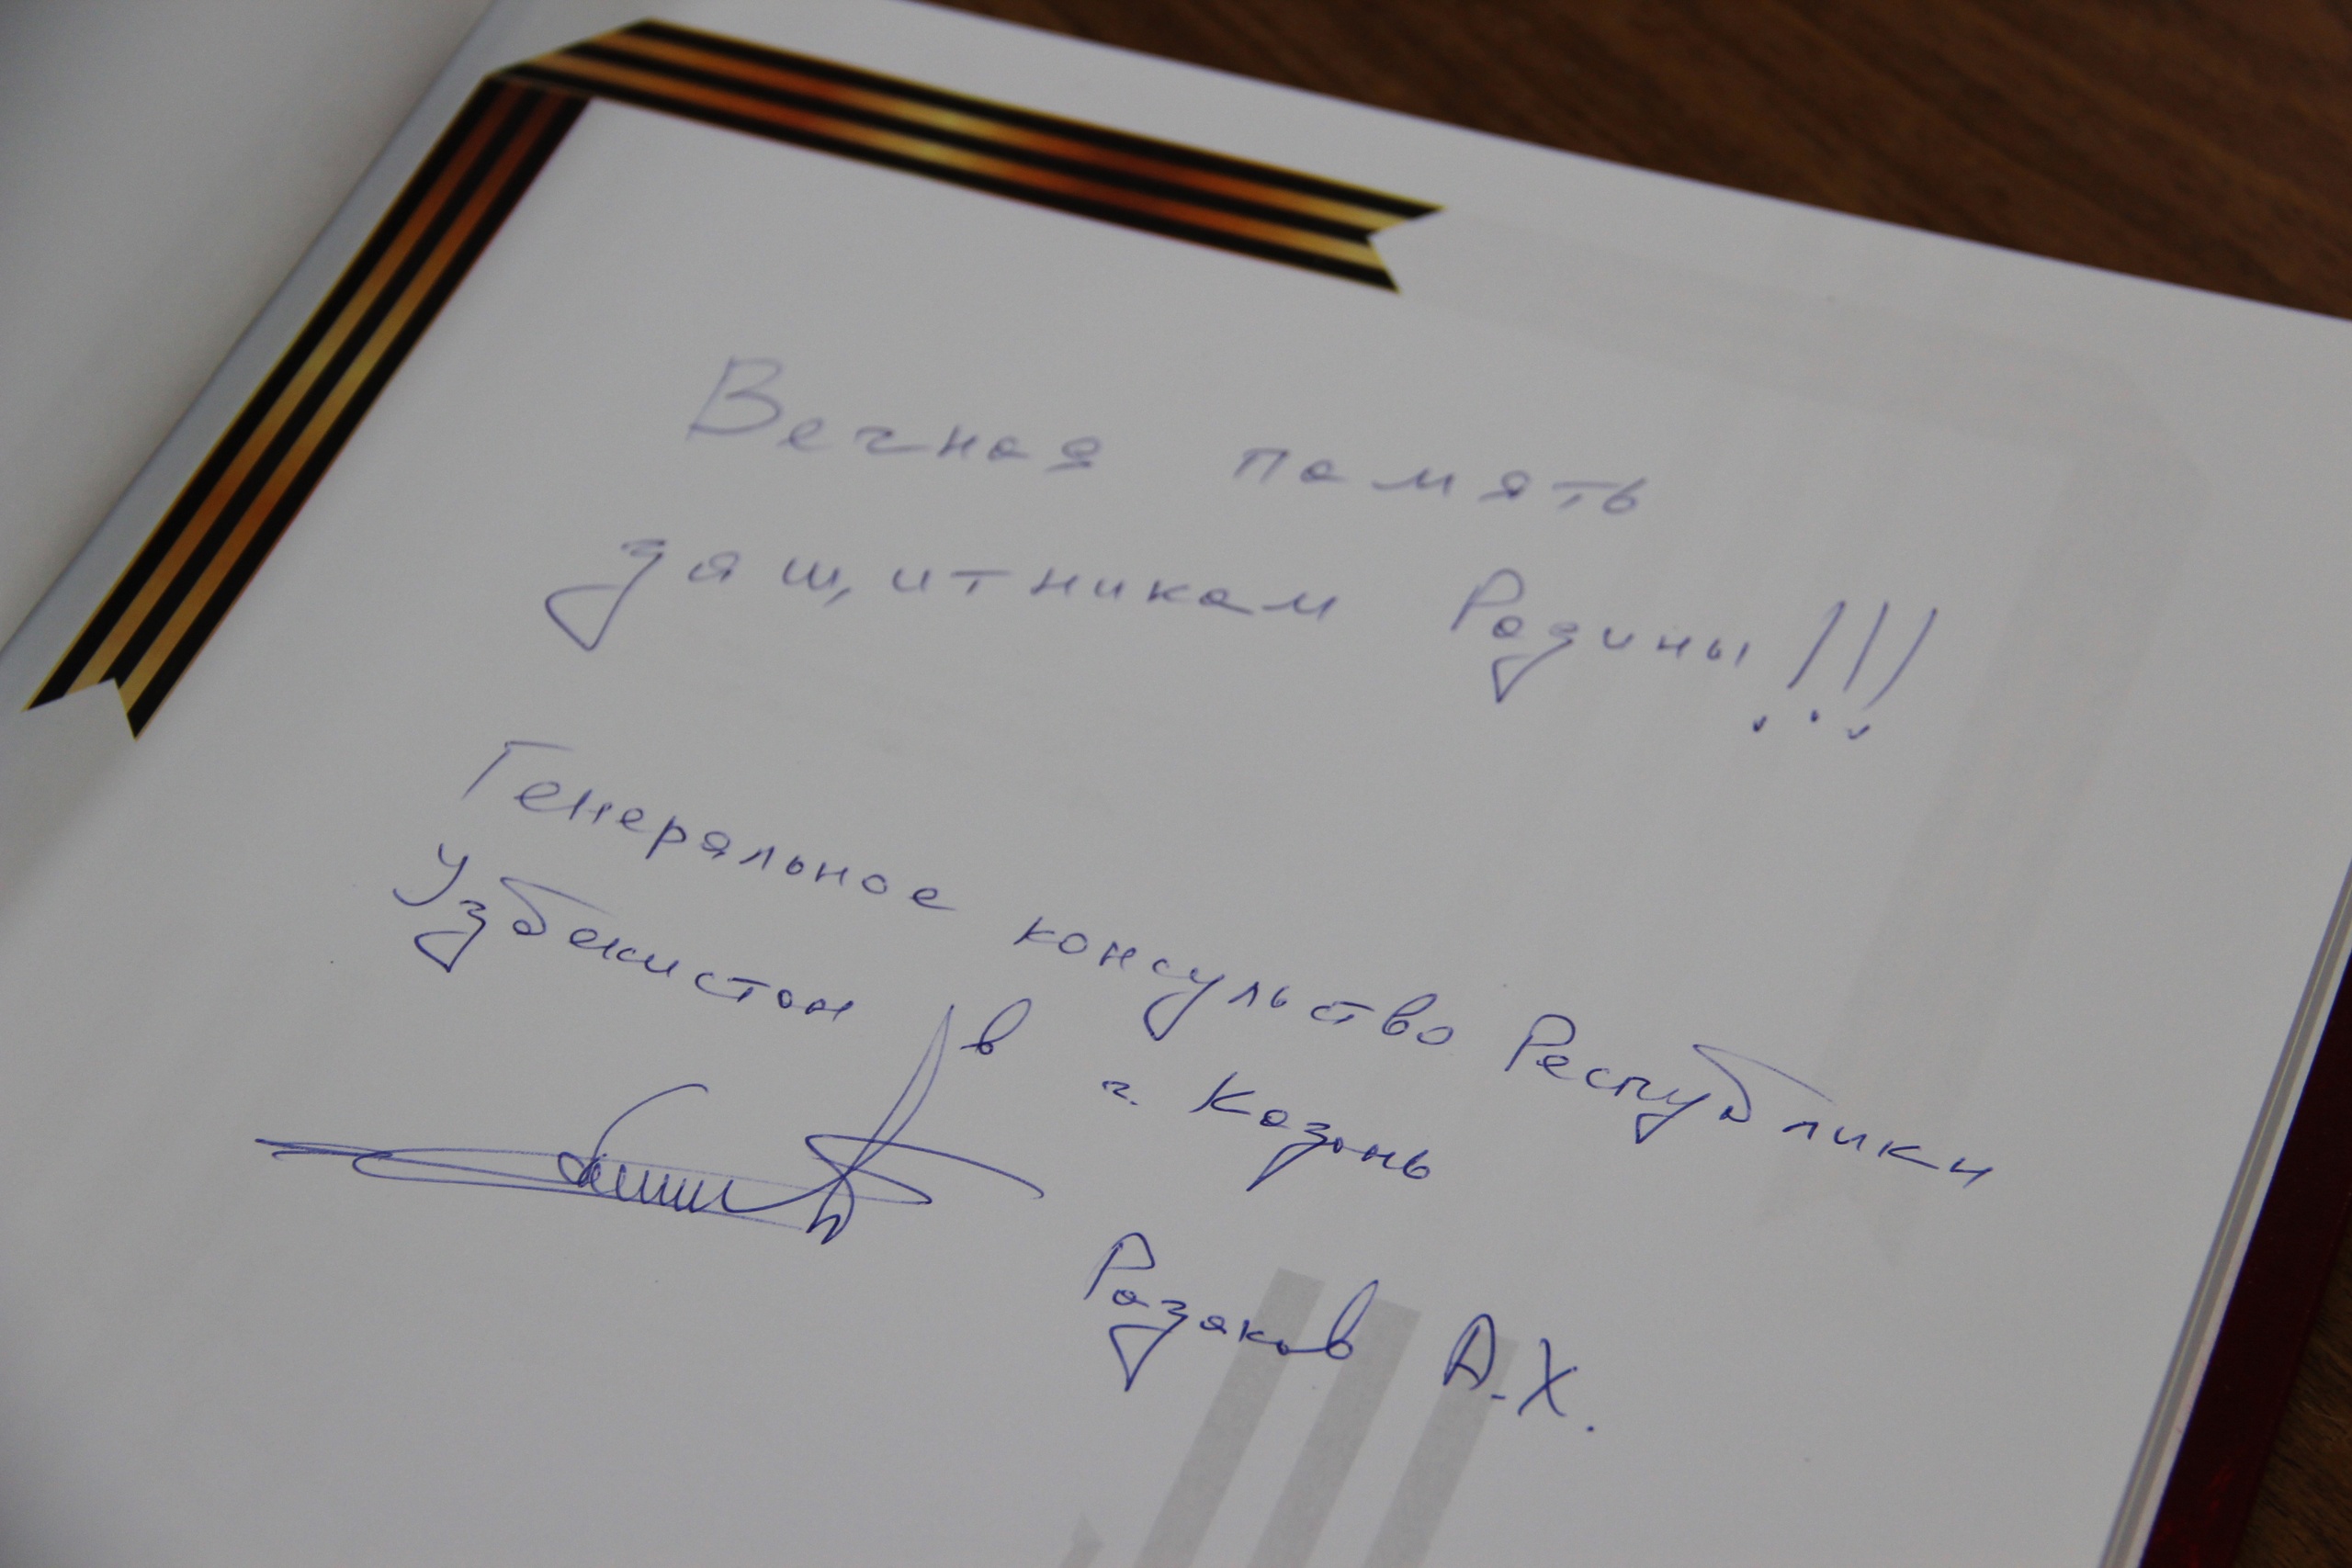 Вечная память
защитникам Родины!!!
Генеральное консульство Республики
Узбекистон в г. Казань
Розаков А.Х.